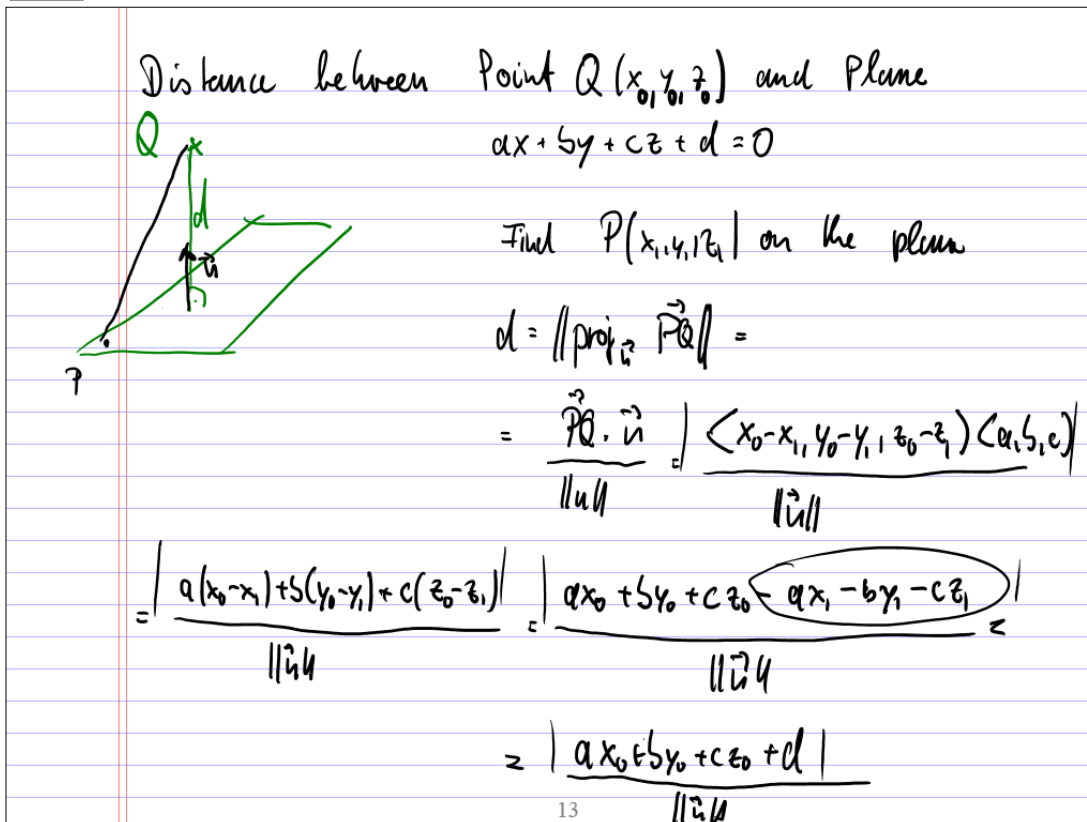 Distance between Point Q(x₀, y₀, z₀) and Plane
ax + by + cz + d = 0
Q x
d
n⃗
P
Find P(x₁, y₁, z₁) on the plane
d = ||proj_n⃗ P⃗Q|| =
= P⃗Q · n⃗ / ||n|| = |⟨x₀-x₁, y₀-y₁, z₀-z₁⟩⟨a, b, c⟩| / ||n⃗||
= |a(x₀-x₁) + b(y₀-y₁) + c(z₀-z₁)| / ||n⃗|| = |ax₀ + by₀ + cz₀ - ax₁ - by₁ - cz₁| / ||n⃗|| =
= |ax₀ + by₀ + cz₀ + d| / ||n⃗||
13